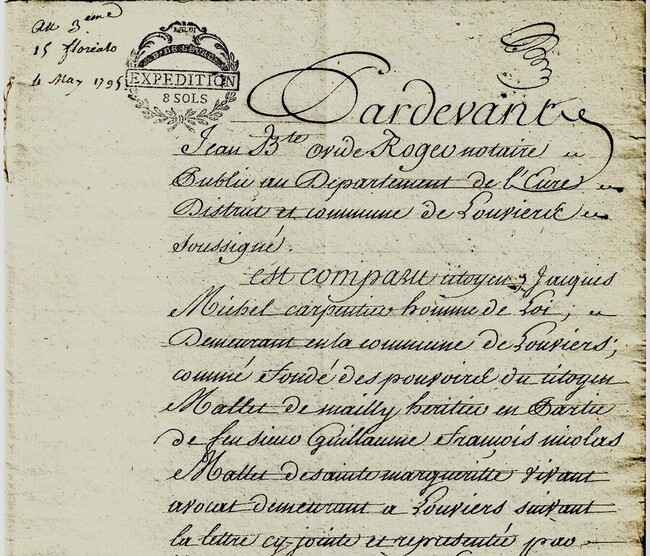 an 3eme
15 floréal
4 May 1795
EXPEDITION
8 SOLS
Pardevant
Jean Bte ovide Roger notaire
Public au Département de l'Eure
District et commune de Louviers
soussigné.
est comparu citoyen Jacques
Michel carpentier homme de Loi,
Demeurant en la commune de Louviers;
comme fondé des pouvoires du citoyen
Mallet de mailly heritier en Partie
de feu sieur Guillaume François nicolas
Mallet de sainte margueritte vivant
avocat demeurant a Louviers suivant
la lettre cy jointe et representée par